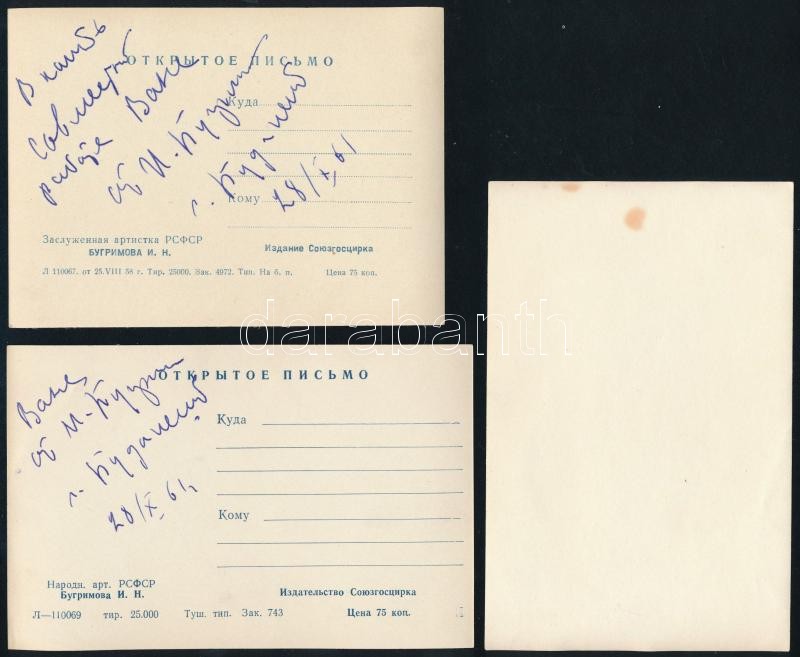 ОТКРЫТОЕ ПИСЬМО
В память
Совместной
работе Ване
от И. Бугрим
г. Будапешт
28/X 61
Куда
Кому
Заслуженная артистка РСФСР
БУГРИМОВА И. Н.
Издание Союзгосцирка
Л 110067. от 25.VIII 58 г. Тир. 25000. Зак. 4972. Тип. На б. п. Цена 75 коп.
darabanth
ОТКРЫТОЕ ПИСЬМО
Ване
от И. Бугрим
г. Будапешт
28/X 61 г.
Куда
Кому
Народн. арт. РСФСР
Бугримова И. Н.
Издательство Союзгосцирка
Л—110069 тир. 25.000 Туш. тип. Зак. 743 Цена 75 коп.